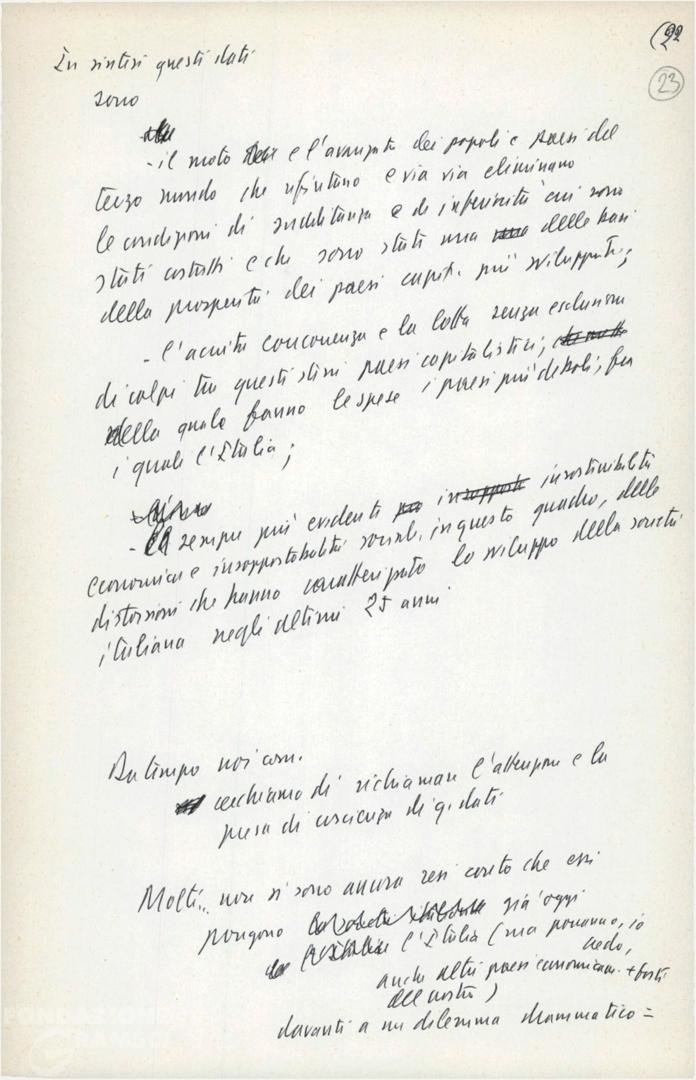 (22
23
In sintesi questi dati
sono
- il moto e l'avanzata dei popoli e paesi del
terzo mondo che rifiutano e via via eliminano
le condizioni di sudditanza e di inferiorità cui sono
stati costretti e che sono stati una delle basi
della prosperità dei paesi capit. più sviluppati;
- l'acuita concorrenza e la lotta senza esclusioni
di colpi tra questi stessi paesi capitalistici;
della quale fanno le spese i paesi più deboli; fra
i quali l'Italia;
- sempre più evidenti insostenibilità
economica e insopportabilità sociali, in questo quadro, delle
distorsioni che hanno caratterizzato lo sviluppo della società
italiana negli ultimi 25 anni.
Da tempo noi com.
cerchiamo di richiamare l'attenzione e la
presa di coscienza di q. dati
Molti.. non si sono ancora resi conto che essi
pongono già oggi
l'Italia (ma porranno, io
credo,
anche altri paesi economicam. + forti
del nostro)
davanti a un dilemma drammatico =